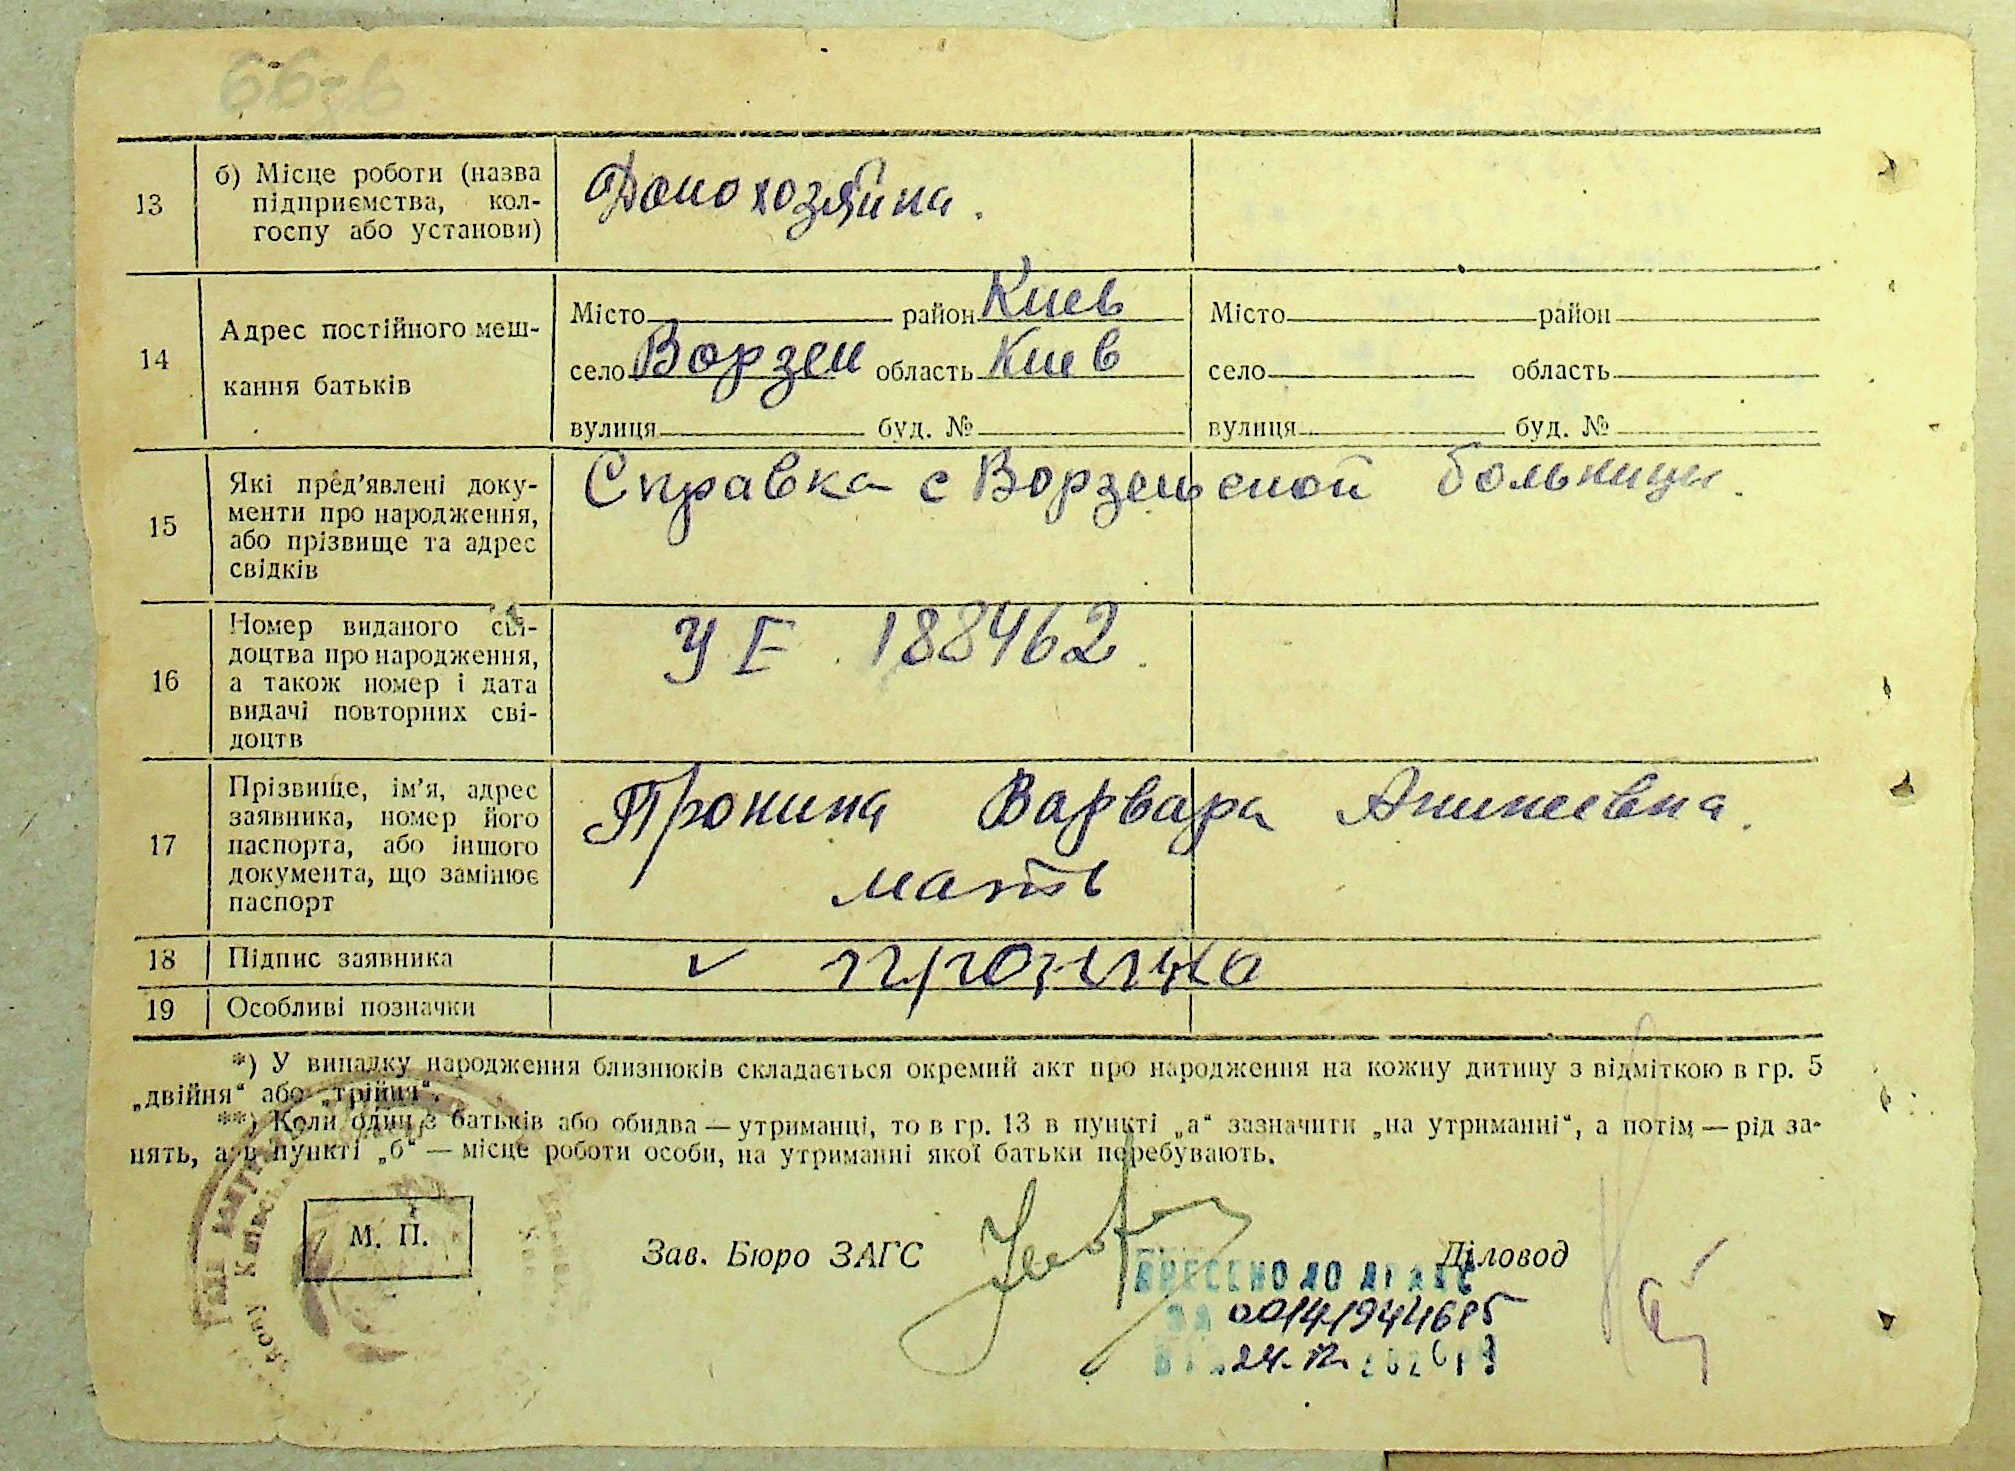 66-б
13
б) Місце роботи (назва
підприємства, кол-
госпу або установи)
Домохозяйка.
14
Адрес постійного меш-
кання батьків
Місто район Киев
село Ворзеи область Киев
вулиця буд. №
Місто район
село область
вулиця буд. №
15
Які пред’явлені доку-
менти про народження,
або прізвище та адрес
свідків
Справка с Ворзельской больници.
16
Номер виданого сві-
доцтва про народження,
а також номер і дата
видачі повторних сві-
доцтв
УЕ 188462
17
Прізвище, ім’я, адрес
заявника, номер його
паспорта, або іншого
документа, що замінює
паспорт
Пронина Варвара
мать
18
Підпис заявника
✓ пронина
19
Особливі позначки
*) У випадку народження близнюків складається окремий акт про народження на кожну дитину з відміткою в гр. 5
„двійня“ або „трійня“.
**) Коли один з батьків або обидва — утриманці, то в гр. 13 в пункті „а“ зазначити „на утриманні“, а потім — рід за-
нять, а в пункті „б“ — місце роботи особи, на утриманні якої батьки перебувають.
М. П.
Зав. Бюро ЗАГС
Діловод
ВНЕСЕНО ДО ДРАЦС
ЗА 00141944685
24.12.2020